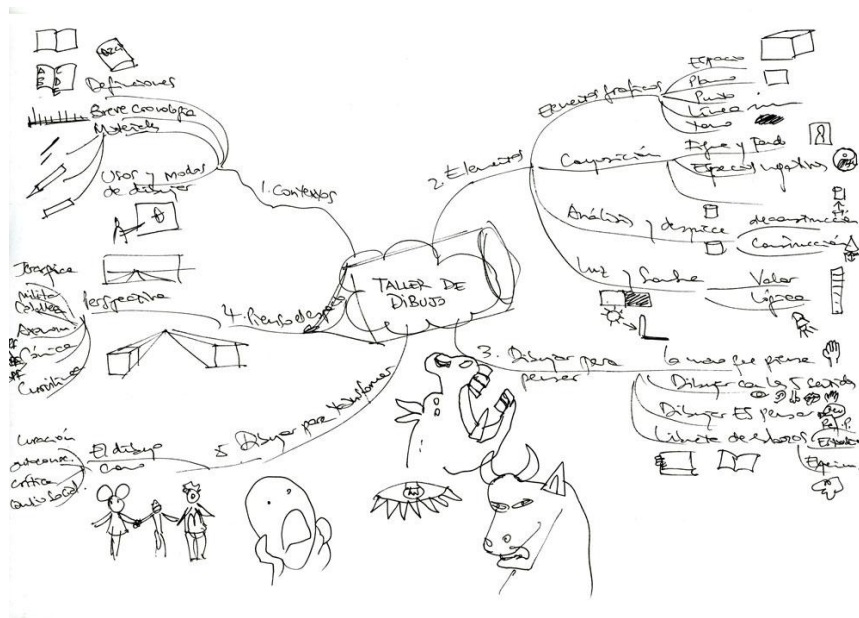 TALLER DE
DIBUJO
1. Contextos
Definiciones
Breve cronología
Materiales
Usos y modos
de dibujar
2. Elementos
Elementos gráficos
Espacio
Plano
Punto
Línea
Tono
Composición
Figura y fondo
Espacios negativos
Análisis y despiece
deconstrucción
Construcción
Luz y Sombra
Valor
Lógica
3. Dibujar para
pensar
La mano que piensa
Dibujar con los 5 sentidos
Dibujar ES pensar
Libreta de esbozos
4.
Perspectiva
Militar
Caballera
Axonom.
Cónica
Curvilínea
5. Dibujar para transformar
El dibujo
como
Curación
autoconoc.
crítica
cambio social.